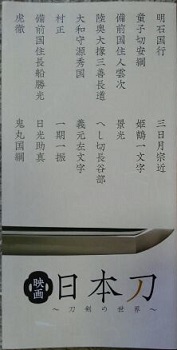 明石国行
童子切安綱
備前国住人雲次
陸奥大掾三善長道
大和守源秀国
村正
備前国住長船勝光
虎徹
三日月宗近
姫鶴一文字
景光
へし切長谷部
義元左文字
一期一振
日光助真
鬼丸国綱
映画
日本刀
～刀剣の世界～